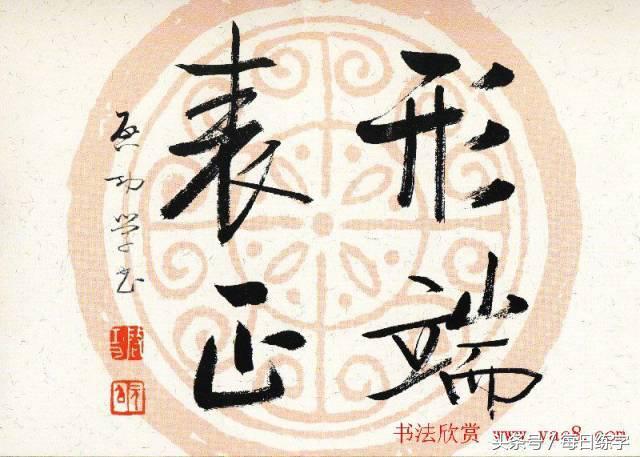 形端
表正
启功学书
书法欣赏 www.yac8.com
头条号 / 每日练字